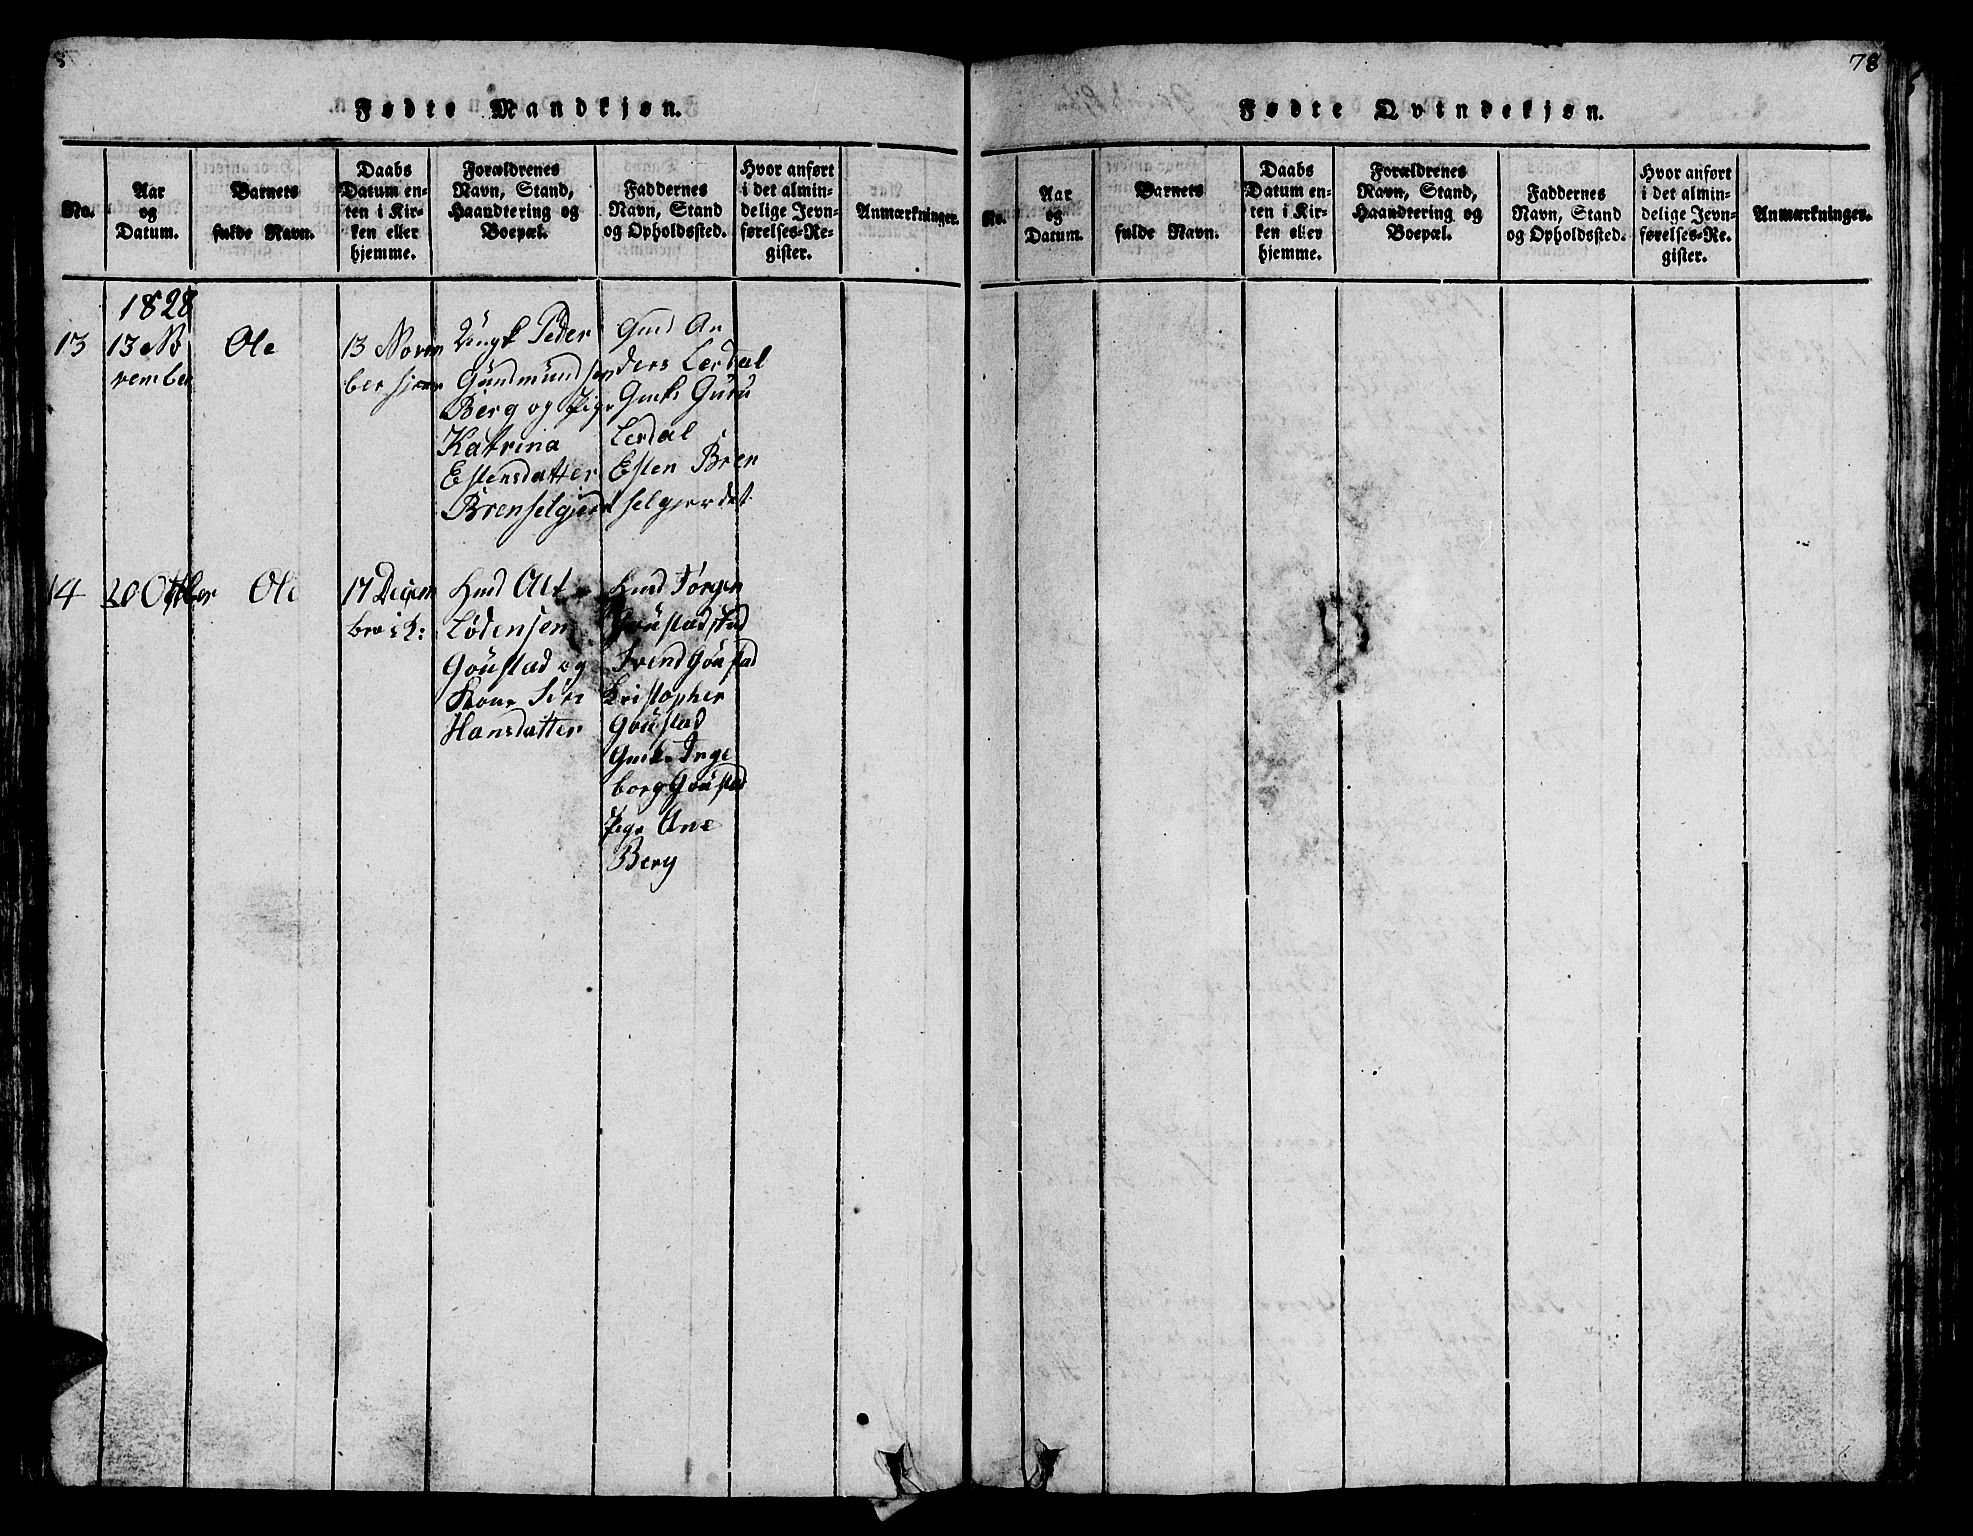 78
Fødte Mandkjøn.
No.
Aar og Datum.
Barnets fulde Navn.
Daabs Datum enten i Kirken eller hjemme.
Forældrenes Navn, Stand, Haandtering og Boepæl.
Faddernes Navn, Stand og Opholdssted.
Hvor anført i det almindelige Jevnførelses-Register.
Anmærkninger.
1828
13
13 No
vember
Ole
13 Novem
ber hjem
Ungk Peder
Gundmundsen
Berg og Pige
Katrina
Estensdatter
Brenselgjerd
Gmd An
ders Lerdal
Gmk Guru
Lerdal
Esten Bren
selgjerdet
14
20 Octber
Ole
17 Decem
ber i K:
Hmd Olt
Lødensen
Goustad og
Kone Siri
Hansdatter
Hmd Jørgen
Goustadstad
Svend Goustad
Kristopher
Goustad
Gmk Inge
borg Goustad
Pige Ane
Berg
Fødte Qvindekjøn.
No.
Aar og Datum.
Barnets fulde Navn.
Daabs Datum enten i Kirken eller hjemme.
Forældrenes Navn, Stand, Haandtering og Boepæl.
Faddernes Navn, Stand og Opholdssted.
Hvor anført i det almindelige Jevnførelses-Register.
Anmærkninger.